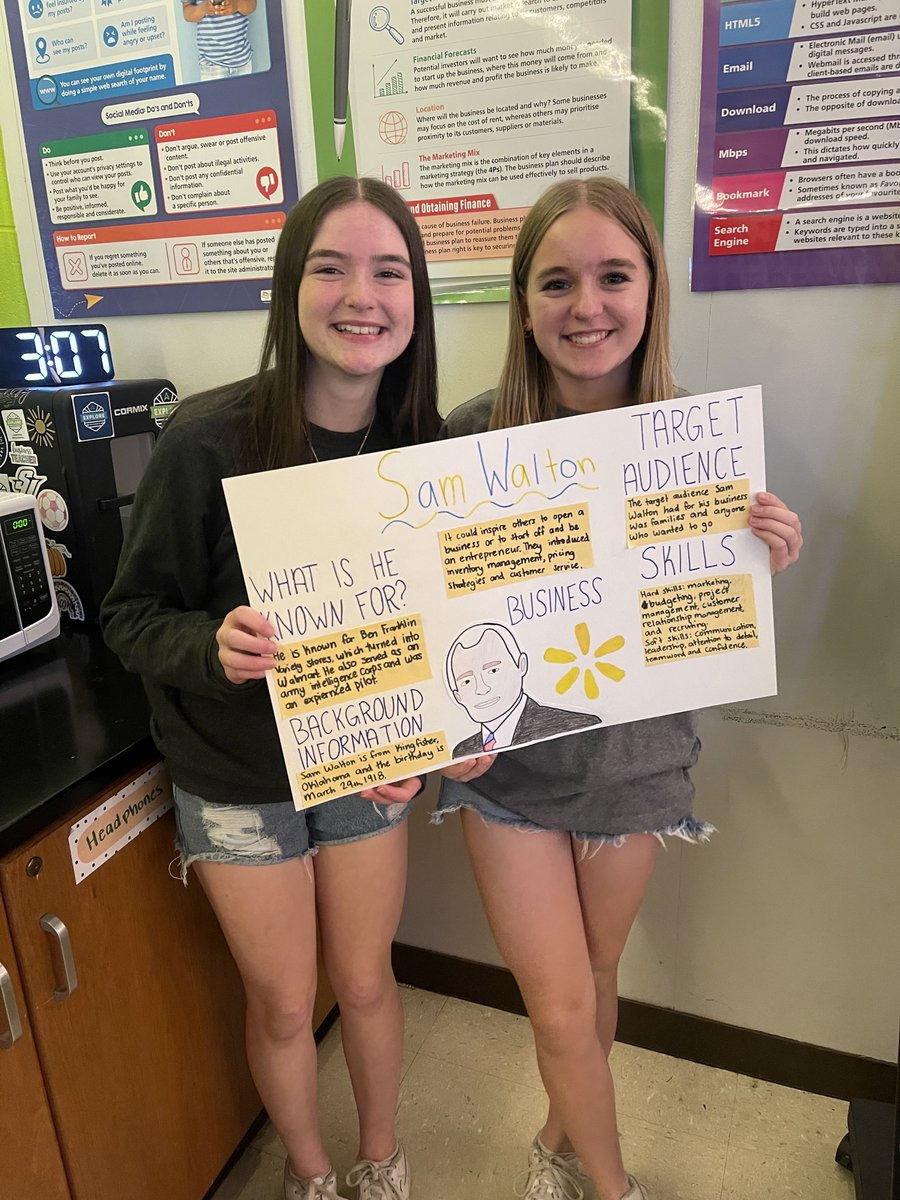 insulted by
my posts?
Who can
see my posts?
Am I posting
while feeling
angry or upset?
www
You can see your own digital footprint by
doing a simple web search of your name.
Social Media: Do's and Don'ts
Do
• Think before you post.
• Use your account's privacy settings to
control who can view your posts.
• Post what you'd be happy for
your family to see.
• Be positive, informed,
responsible and considerate.
Don't
• Don't argue, swear or post offensive
content.
• Don't post about illegal activities.
• Don't post any confidential
information.
• Don't complain about
a specific person.
How to Report
If you regret something
you've posted online,
delete it as soon as you can.
If someone else has posted
something about you or
others that's offensive,
it to the site administrator.
A successful business must
Therefore, it will carry out market
and present information relating to customers, competitors
and market.
Financial Forecasts
Potential investors will want to see how much money is needed
to start up the business, where this money will come from and
how much revenue and profit the business is likely to make.
Location
Where will the business be located and why? Some businesses
may focus on the cost of rent, whereas others may prioritise
proximity to its customers, suppliers or materials.
The Marketing Mix
The marketing mix is the combination of key elements in a
marketing strategy (the 4Ps). The business plan should describe
how the marketing mix can be used effectively to sell products.
and Obtaining Finance
cause of business failure. Business
and prepare for potential problems
business plan to reassure them
plan is key to securing
HTML5
build web pages.
• CSS and Javascript are
Email
• Electronic Mail (email)
digital messages.
• Webmail is accessed
client-based emails are
Download
• The process of copying a
• The opposite of
Mbps
• Megabits per second
download speed.
• This dictates how quickly
and navigated.
Bookmark
• Browsers often have a
• Sometimes known as
addresses of your favourite
Search
Engine
• A search engine is a website
• Keywords are typed into a
websites relevant to these
3:07
EXPLORE
CORMIX
TEACHER
0:00
Headphones
Sam Walton
TARGET
AUDIENCE
The target audience Sam
Walton had for his business
was families and anyone
who wanted to go
It could inspire others to open a
business or to start off and be
an entrepreneur. They introduced
inventory management, pricing
strategies and customer service.
BUSINESS
SKILLS
Hard skills: marketing,
budgeting, project
management, customer
relationship management,
and recruiting.
Soft skills: communication,
leadership, attention to detail,
teamword and confidence.
WHAT IS HE
KNOWN FOR?
He is known for Ben Franklin
Variety Stores, which turned into
Walmart. He also served as an
army intelligence corps and was
an expiernced pilot
BACKGROUND
INFORMATION
Sam Walton is from Kingfisher,
Oklahoma and the birthday is
March 29th, 1918.